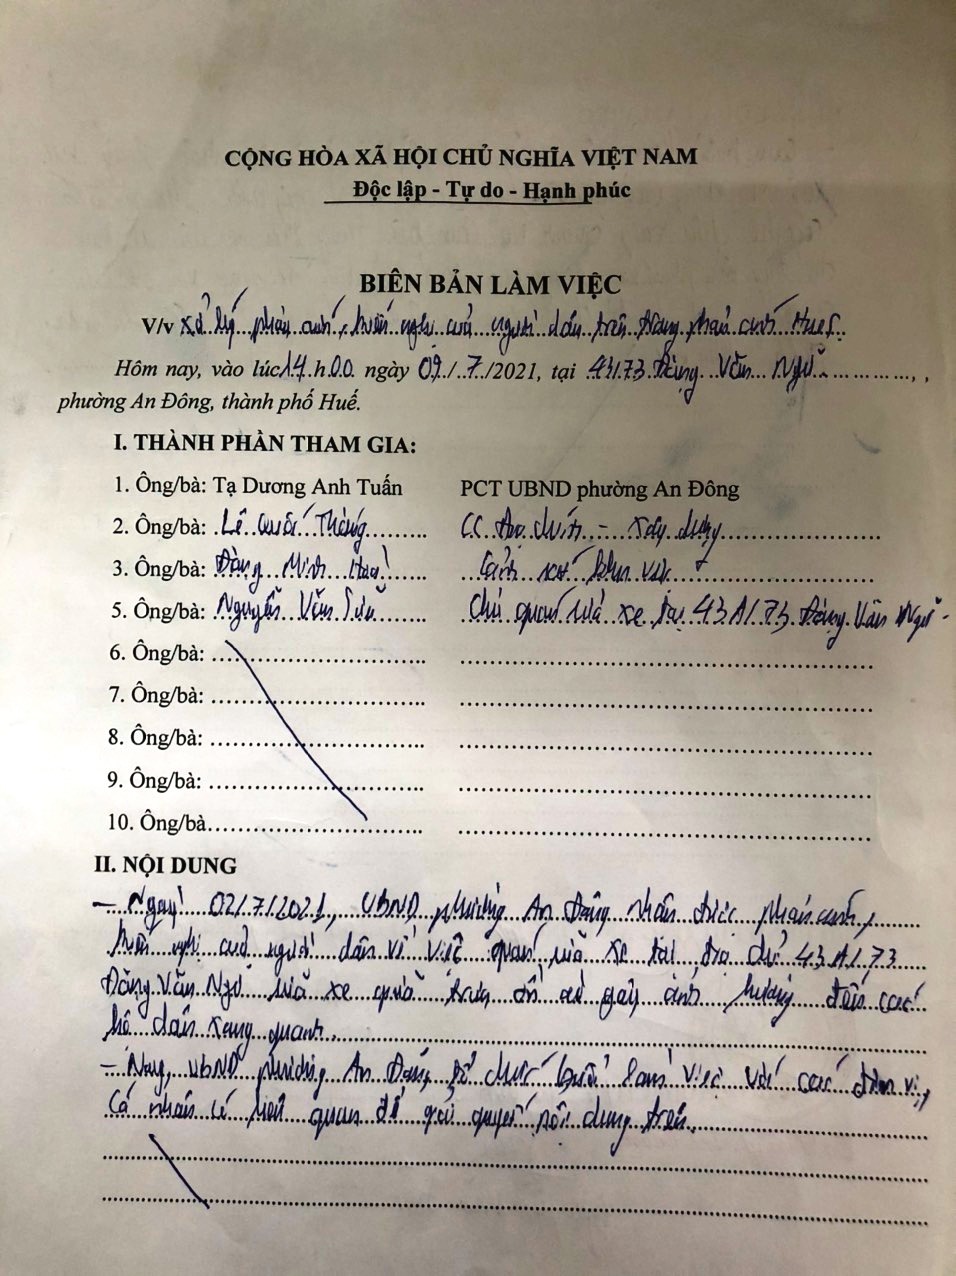 CỘNG HÒA XÃ HỘI CHỦ NGHĨA VIỆT NAM
Độc lập - Tự do - Hạnh phúc
BIÊN BẢN LÀM VIỆC
V/v xử lý phản ánh, kiến nghị của người dân trên trang phản ánh HueS.
Hôm nay, vào lúc 14.h.00. ngày 09./.7./2021, tại 43A1.73 Đặng Văn Ngữ............,
phường An Đông, thành phố Huế.
I. THÀNH PHẦN THAM GIA:
1. Ông/bà: Tạ Dương Anh Tuấn PCT UBND phường An Đông
2. Ông/bà: Lê Quốc Thắng CC địa chính - xây dựng
3. Ông/bà: Đặng Minh Cảnh sát khu vực
5. Ông/bà: Nguyễn Văn Chủ quán rửa xe tại 43A1.73 Đặng Văn Ngữ -
6. Ông/bà:
7. Ông/bà:
8. Ông/bà:
9. Ông/bà:
10. Ông/bà
II. NỘI DUNG
- Ngày 02/7/2021, UBND phường An Đông nhận được phản ánh,
kiến nghị của người dân về việc quán rửa xe tại địa chỉ 43A1.73
Đặng Văn Ngữ rửa xe quá ồn ào gây ảnh hưởng đến các
hộ dân xung quanh.
- Nay, UBND phường An Đông tổ chức buổi làm việc với các đơn vị,
cá nhân có liên quan để giải quyết nội dung trên.